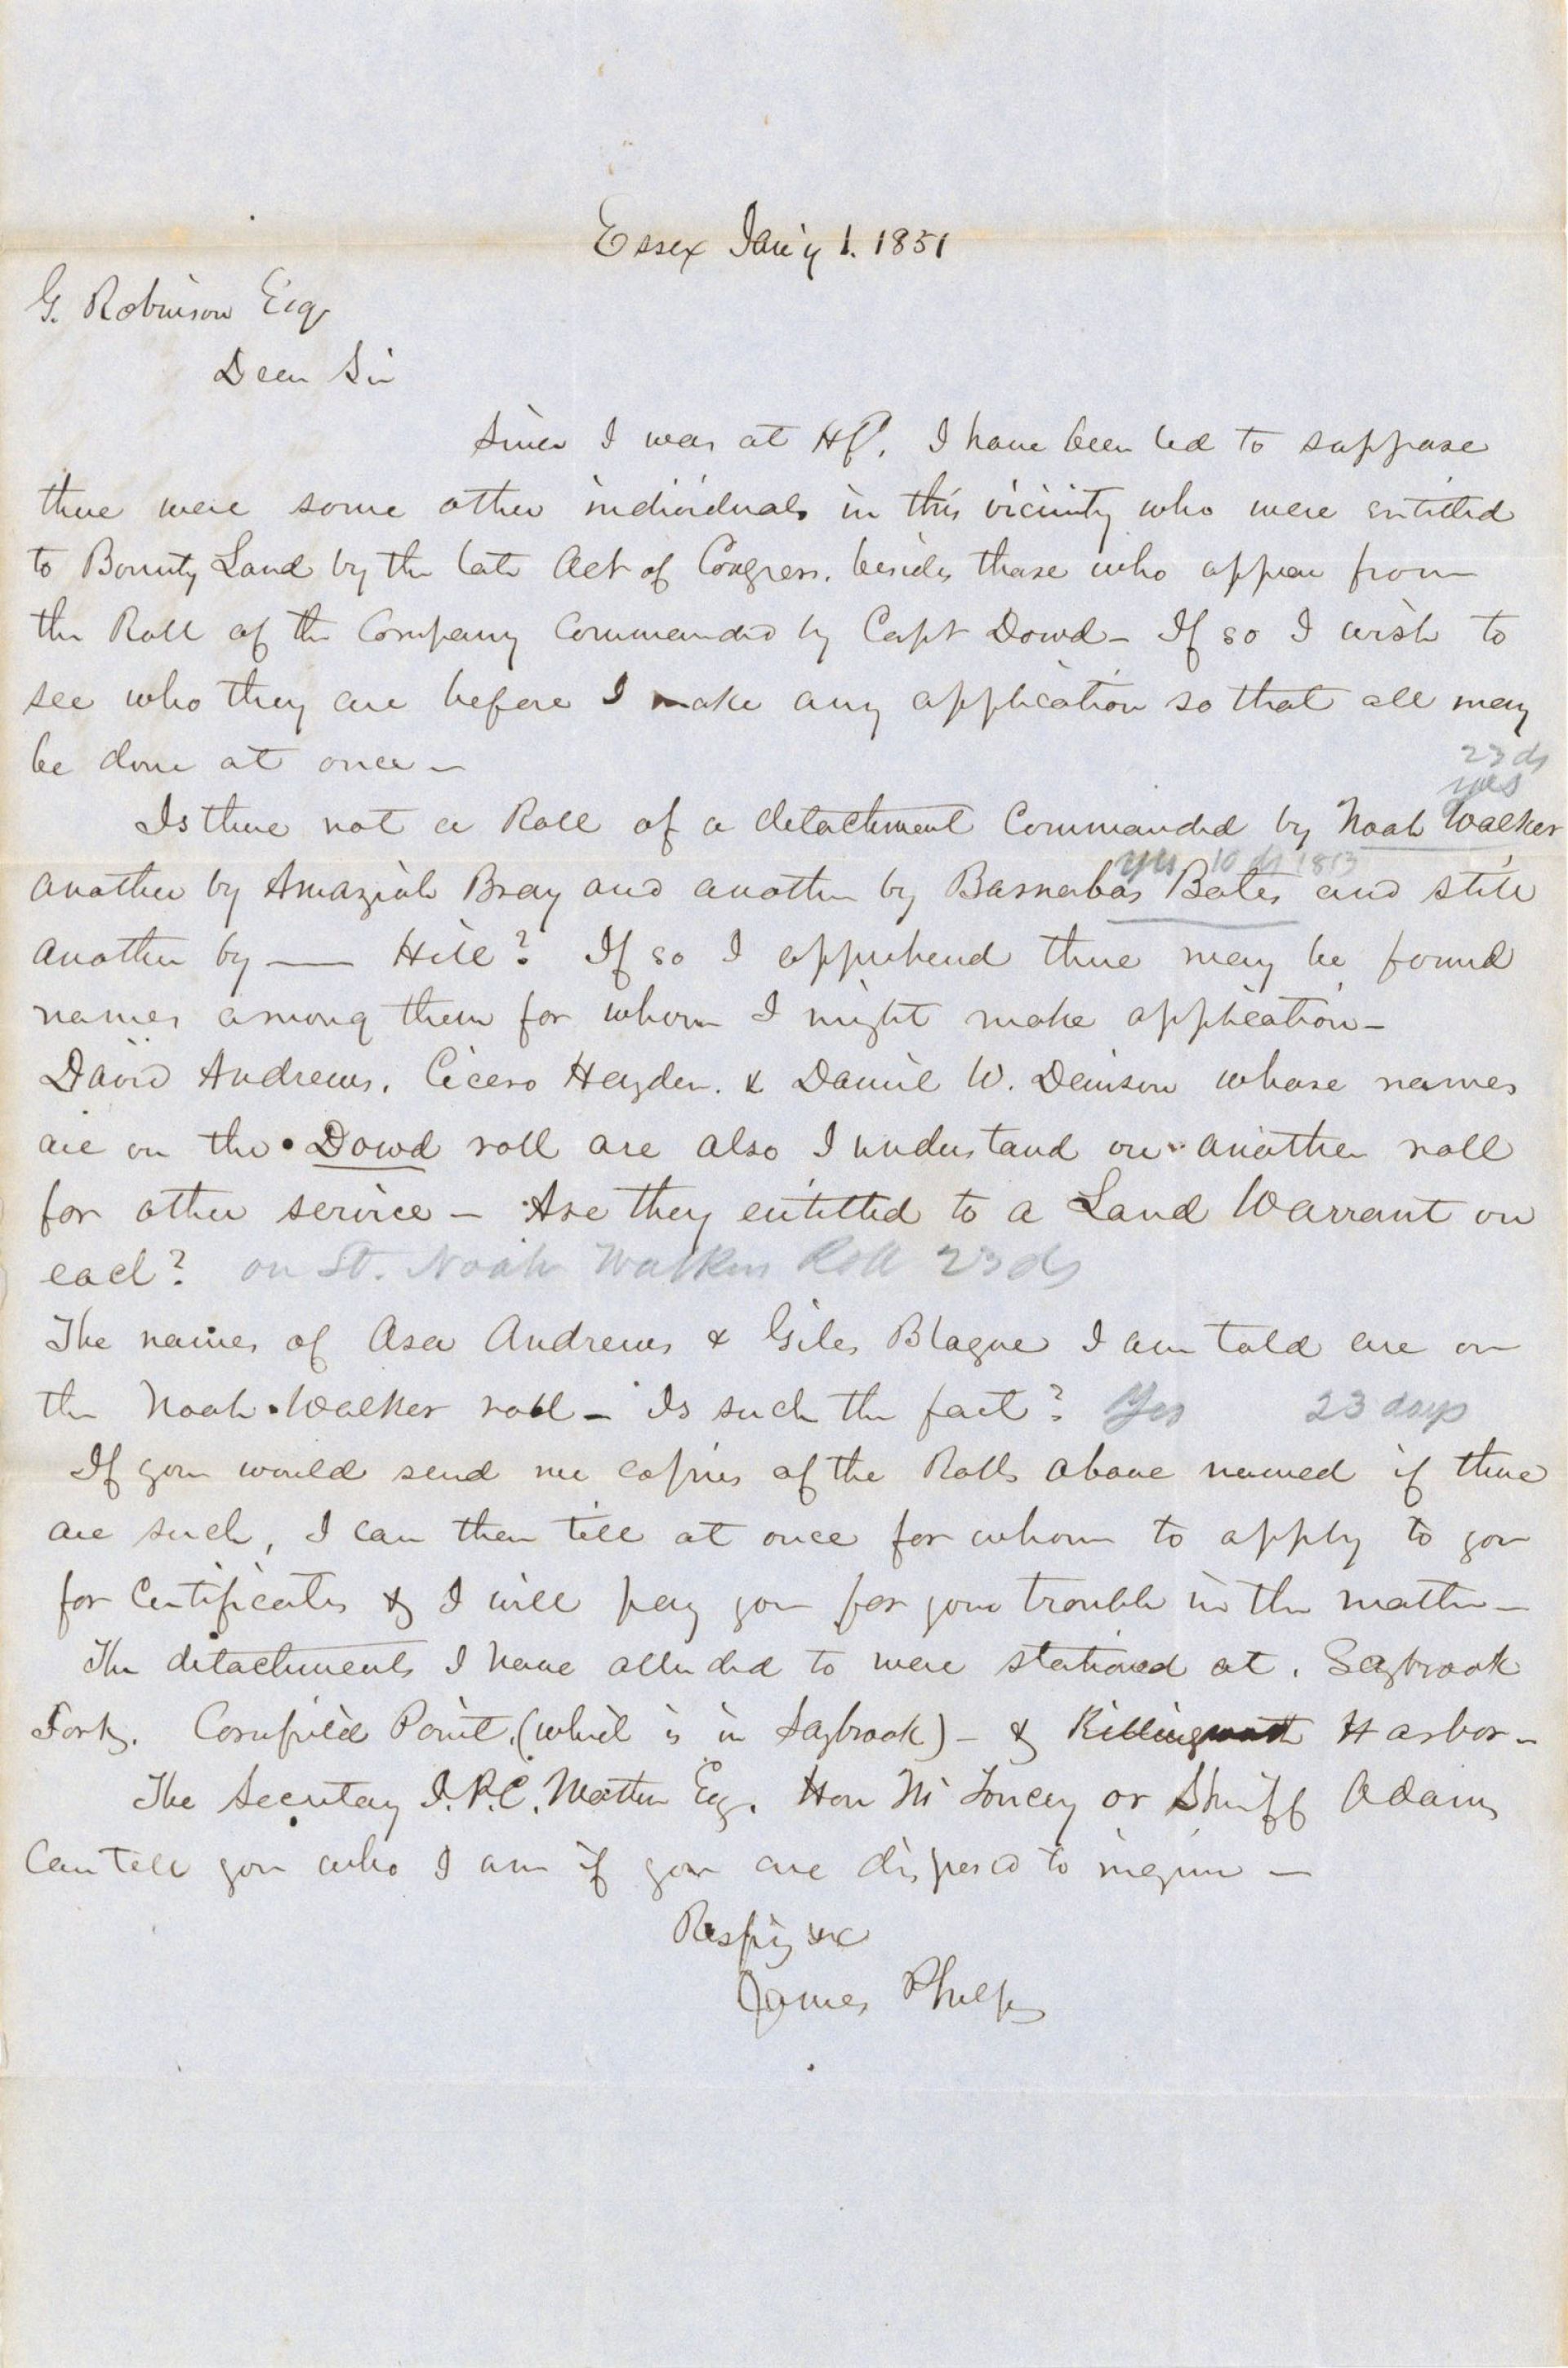 Essex Jan'y 1. 1851
G. Robinson Esq
Dear Sir
Since I was at Hfd. I have been led to suppose
there were some other individuals in this vicinity who were entitled
to Bounty Land by the late Act of Congress, besides those who appear from
the Roll of the Company Commanded by Capt Dowd - If so I wish to
see who they are before I make any application so that all may
be done at once -
23 ds
yes
Is there not a Roll of a detachment Commanded by Noah Walker
yes 10 ds 1813
another by Amaziah Bray and another by Barnabas Bates and still
another by —— Hill? If so I apprehend there may be found
names among them for whom I might make application -
David Andrews, Cicero Hayden. & Daniel W. Denison whose names
are on the Dowd roll are also I understand on another roll
for other service - Are they entitled to a Land Warrant on
each? on Lt. Noah Walkers Roll 23 ds
The names of Asa Andrews & Giles Blague I am told are on
the Noah Walker roll - Is such the fact? Yes 23 days
If you would send me copies of the Rolls above named if there
are such, I can then tell at once for whom to apply to you
for Certificates & I will pay you for your trouble in the matter -
The detachments I have alluded to were stationed at. Saybrook
Fort, Cornfield Point, (which is in Saybrook) - & Killingworth Harbor -
The Secretary J.P.C. Mather Esq. Hon Mr Toucey or Sheriff Adams
Can tell you who I am if you are disposed to inquire -
Resp'y &c
James Phelps